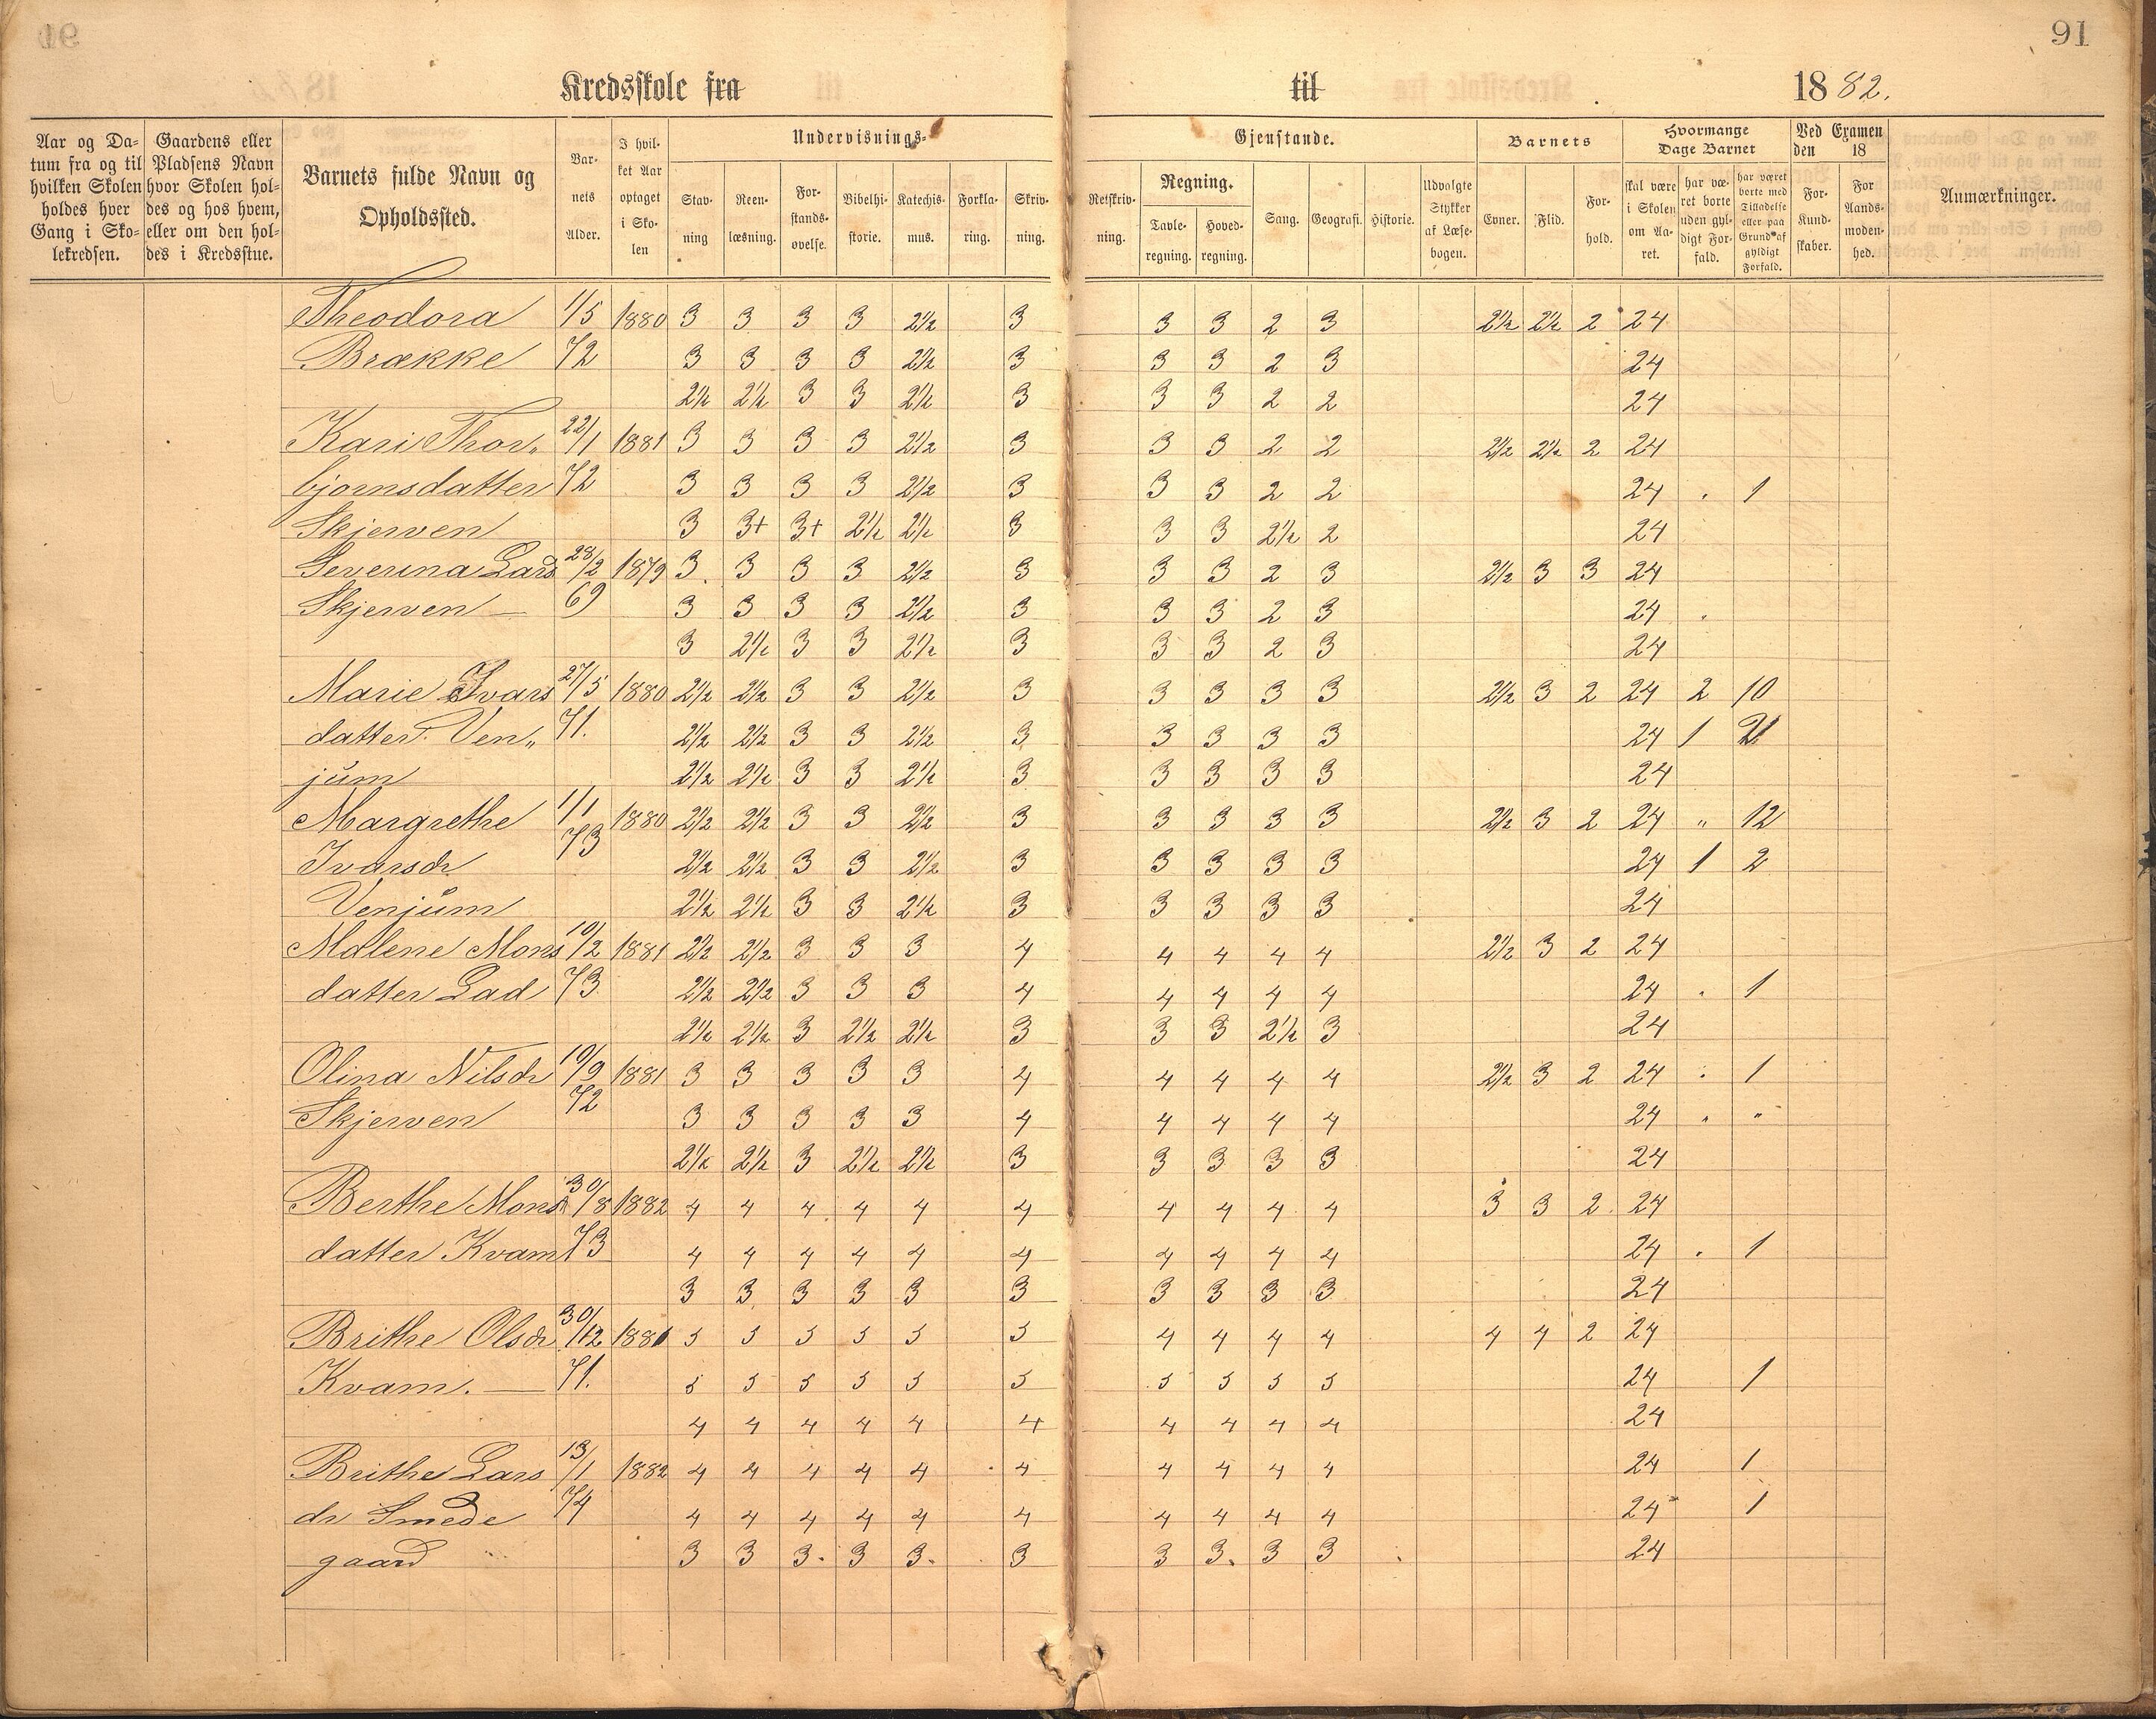 91
Kredsskole fra til 1882.
Aar og Datum fra og til hvilken Skolen holdes hver Gang i Skolekredsen.
Gaardens eller Pladsens Navn hvor Skolen holdes og hos hvem, eller om den holdes i Kredsstue.
Barnets fulde Navn og Opholdssted.
Barnets Alder.
I hvilket Aar optaget i Skolen
Undervisnings-Gjenstande.
Stavning
Reenlæsning.
Forstandsøvelse.
Bibelhistorie.
Katechismus.
Forklaring.
Skrivning.
Retskrivning.
Regning.
Tavleregning.
Hovedregning.
Sang.
Geografi.
Historie.
Udvalgte Stykker af Læsebogen.
Barnets
Evner.
Flid.
Forhold.
Hvormange Dage Barnet
skal være i Skolen om Aaret.
har været borte uden gyldigt Forfald.
har været borte med Tilladelse eller paa Grund af gyldigt Forfald.
Ved Examen den 18
For Kundskaber.
For Aandsmodenhed.
Anmærkninger.
Theodora 1/5 1880 3 3 3 3 2½ 3 3 3 2 3 2½ 2½ 2 24
Brække 72 3 3 3 3 2½ 3 3 3 2 3 24
2½ 2½ 3 3 2½ 3 3 3 2 2 24
Kari Thor„ 22/1 1881 3 3 3 3 2½ 3 3 3 2 2 2½ 2½ 2 24
bjornsdatter 72 3 3 3 3 2½ 3 3 3 2 2 24 . 1
Skjerven 3 3+ 3+ 2½ 2½ 3 3 3 2½ 2 24
Severina Lars 28/2 1879 3 3 3 3 2½ 3 3 3 2 3 2½ 3 3 24
Skjerven — 69 3 3 3 3 2½ 3 3 3 2 3 24 .
3 2½ 3 3 2½ 3 3 3 2 3 24
Marie Ivars 27/5 1880 2½ 2½ 3 3 2½ 3 3 3 3 3 2½ 3 2 24 2 10
datter Ven„ 71. 2½ 2½ 3 3 2½ 3 3 3 3 3 24 1
jum 2½ 2½ 3 3 2½ 3 3 3 3 3 24
Margrethe 1/1 1880 2½ 2½ 3 3 2½ 3 3 3 3 3 2½ 3 2 24 „ 12
Ivarsdr 73 2½ 2½ 3 3 2½ 3 3 3 3 3 24 1 2
Venjum 2½ 2½ 3 3 2½ 3 3 3 3 3 24
Malene Mons 10/2 1881 2½ 2½ 3 3 3 4 4 4 4 4 2½ 3 2 24
datter Lad 73 2½ 2½ 3 3 3 4 4 4 4 4 24 . 1
2½ 2½ 3 2½ 2½ 3 3 3 2½ 3 24
Olina Nilsdr 10/9 1881 3 3 3 3 3 4 4 4 4 4 2½ 3 2 24 . 1
Skjerven 72 3 3 3 3 3 4 4 4 4 4 24 " "
2½ 2½ 3 2½ 2½ 3 3 3 3 3 24
Berthe Mons 30/8 1882 4 4 4 4 4 4 4 4 4 4 3 3 2 24
datter Kvam 73 4 4 4 4 4 4 4 4 4 4 24 . 1
3 3 3 3 3 3 3 3 3 3 24
Brithe Olsdr 30/12 1881 5 5 5 5 5 5 4 4 4 4 4 4 2 24
Kvam. — 71. 5 5 5 5 5 5 5 5 5 5 24 1
4 4 4 4 4 4 4 4 4 4 24
Brithe Lars 13/1 1882 4 4 4 4 4 4 4 4 4 4 24 1
dr Smede 74 4 4 4 4 4 4 4 4 4 4 24 1
gaard 3 3 3 3 3 3 3 3 3 3 24